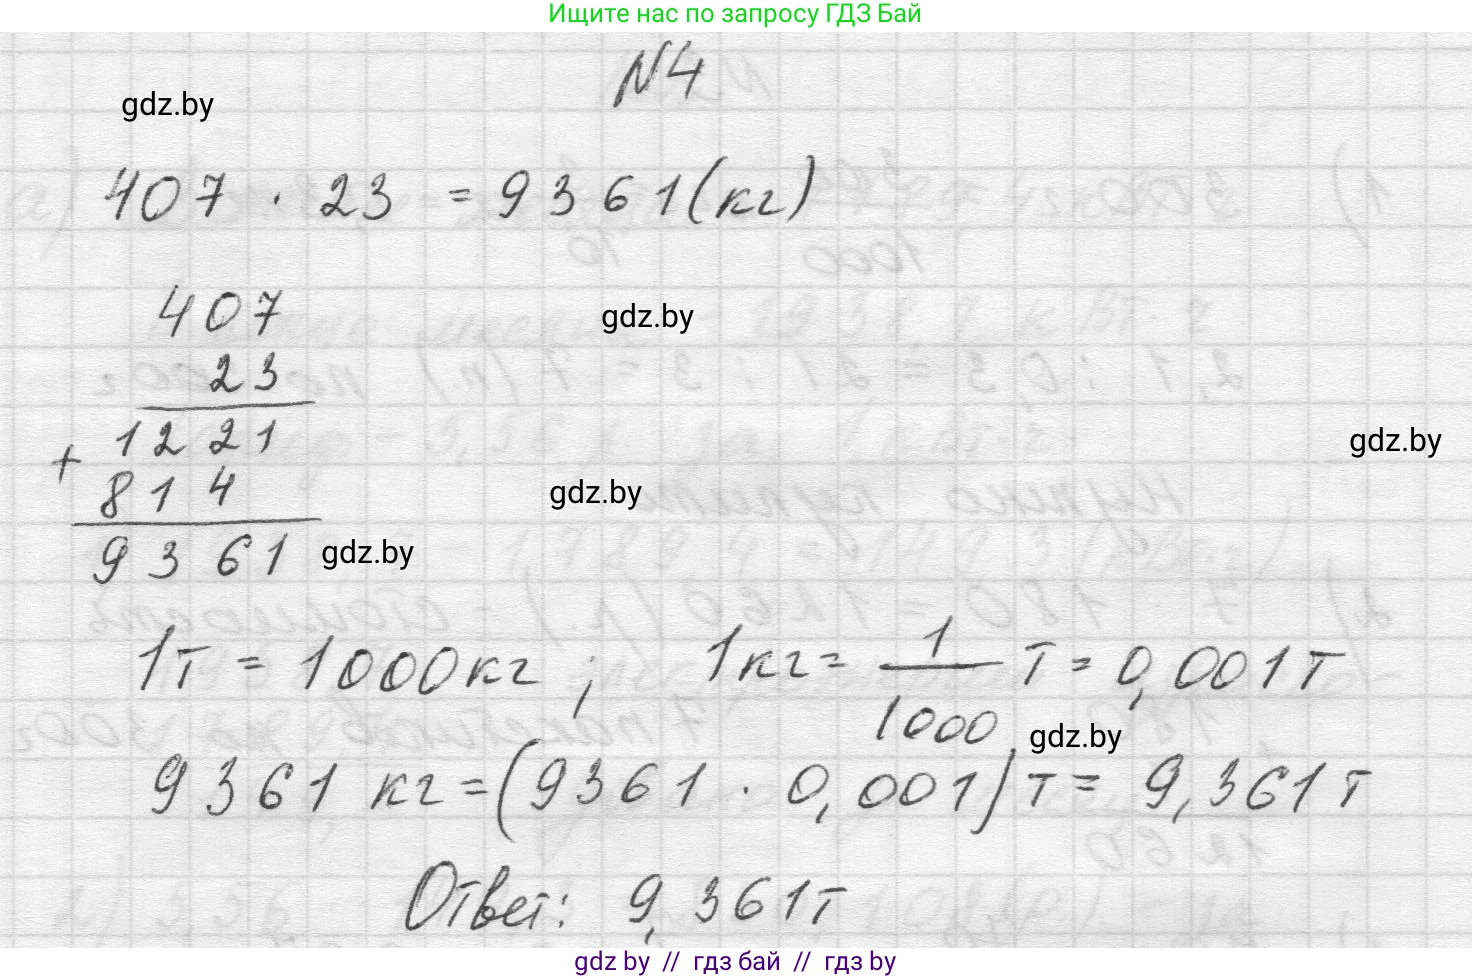 Ищите нас по запросу ГДЗ Бай
N4
gdz.by
407 · 23 = 9361 (кг)
407
gdz.by
23
1221
gdz.by
+
814
gdz.by
9361
gdz.by
1т = 1000кг ; 1кг = 1/1000 т = 0,001т
gdz.by
9361 кг = (9361 · 0,001) т = 9,361 т
Ответ: 9,361т
gdz.by // гдз бай // гдз by